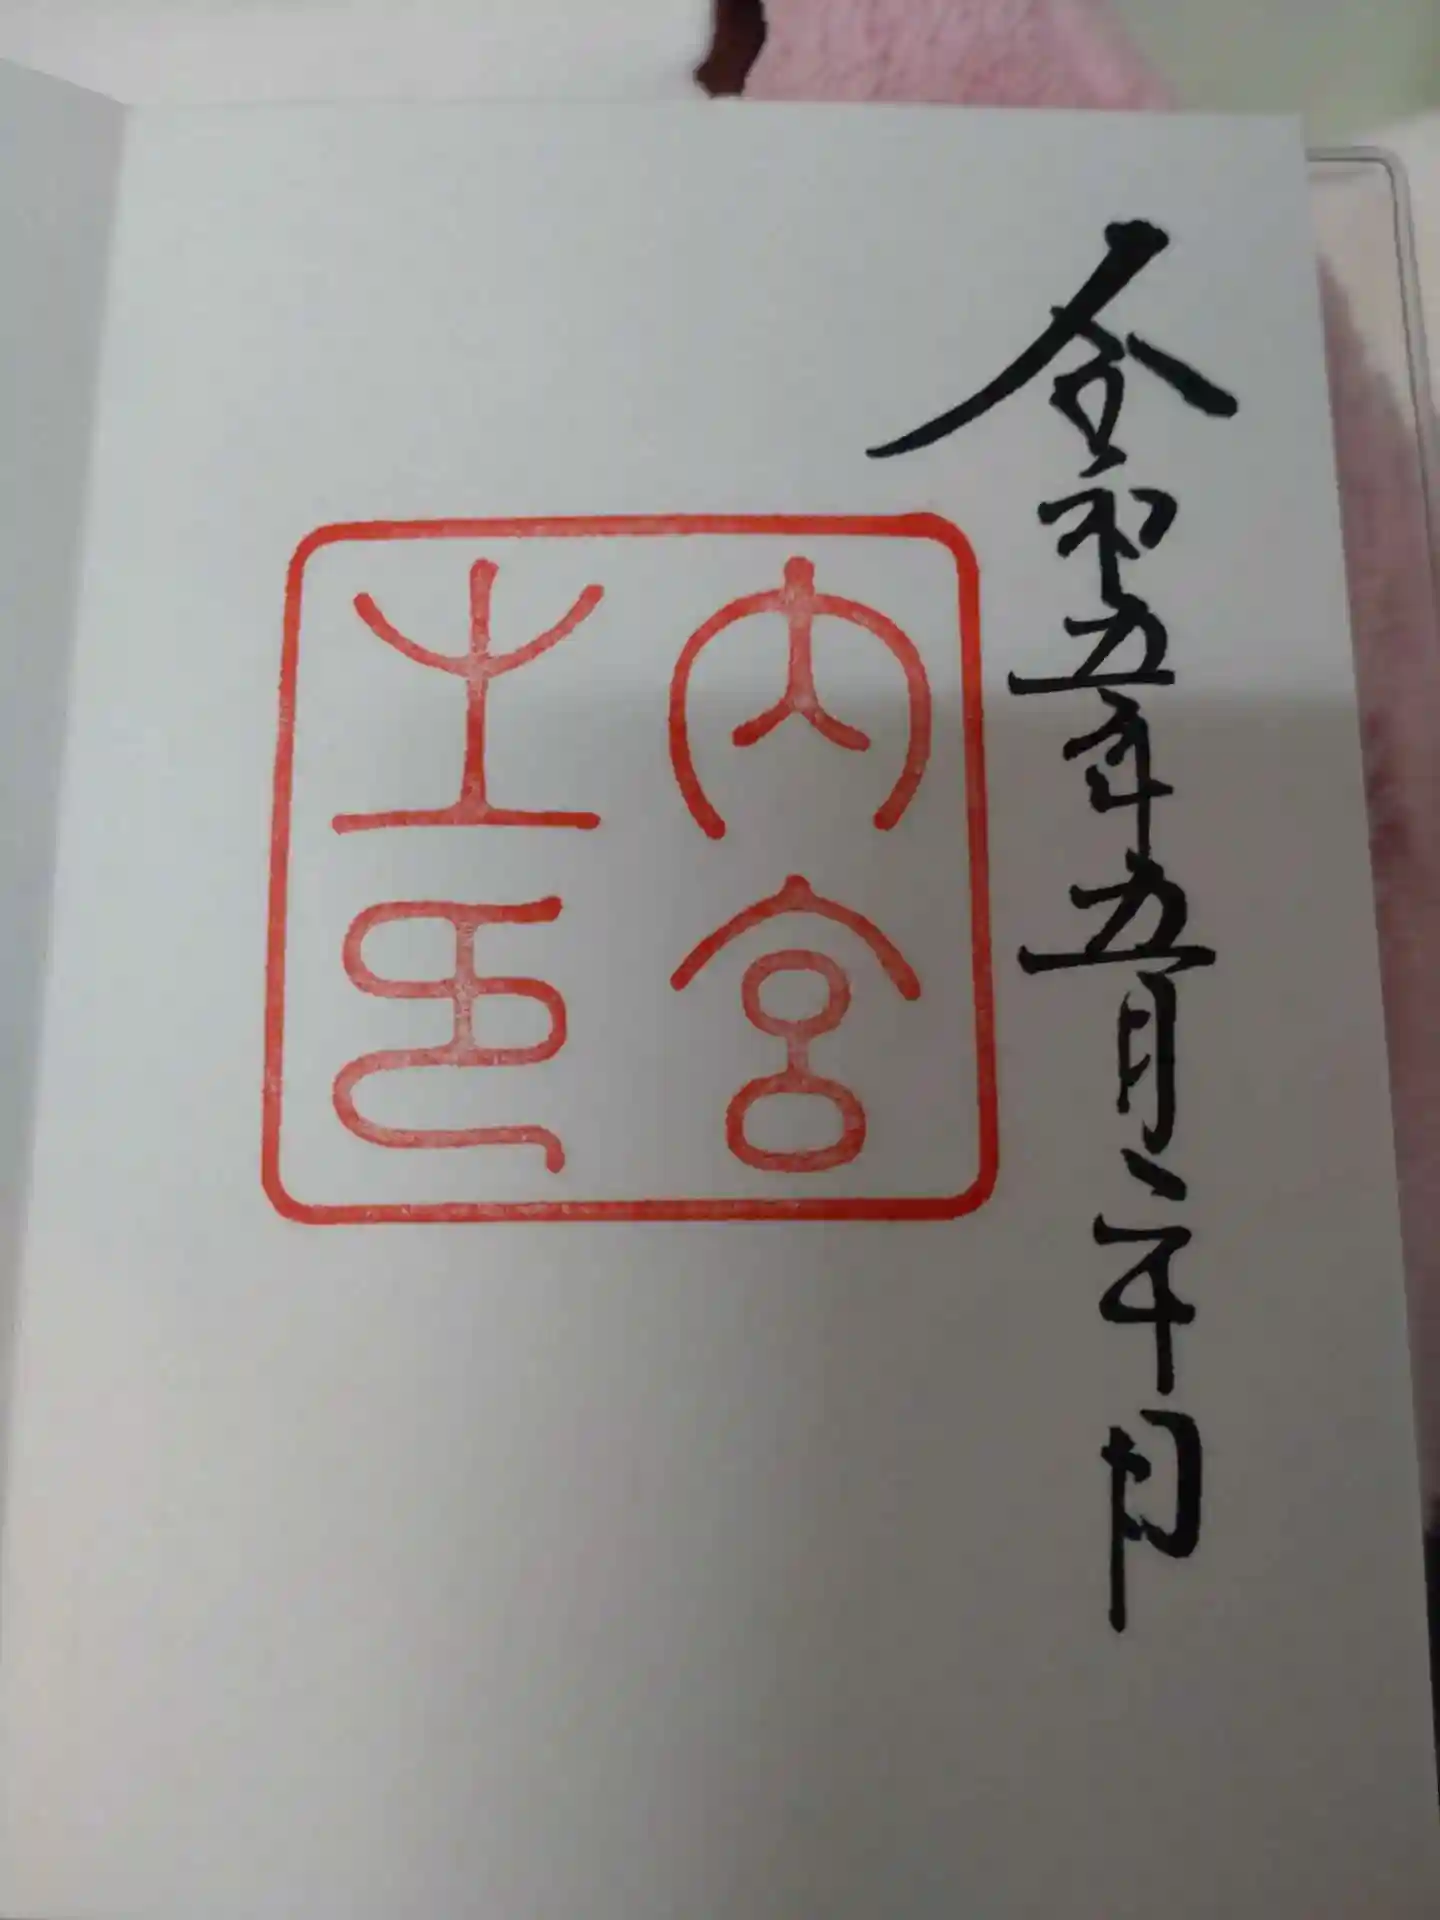 令和五年五月二十日
内宮
之印